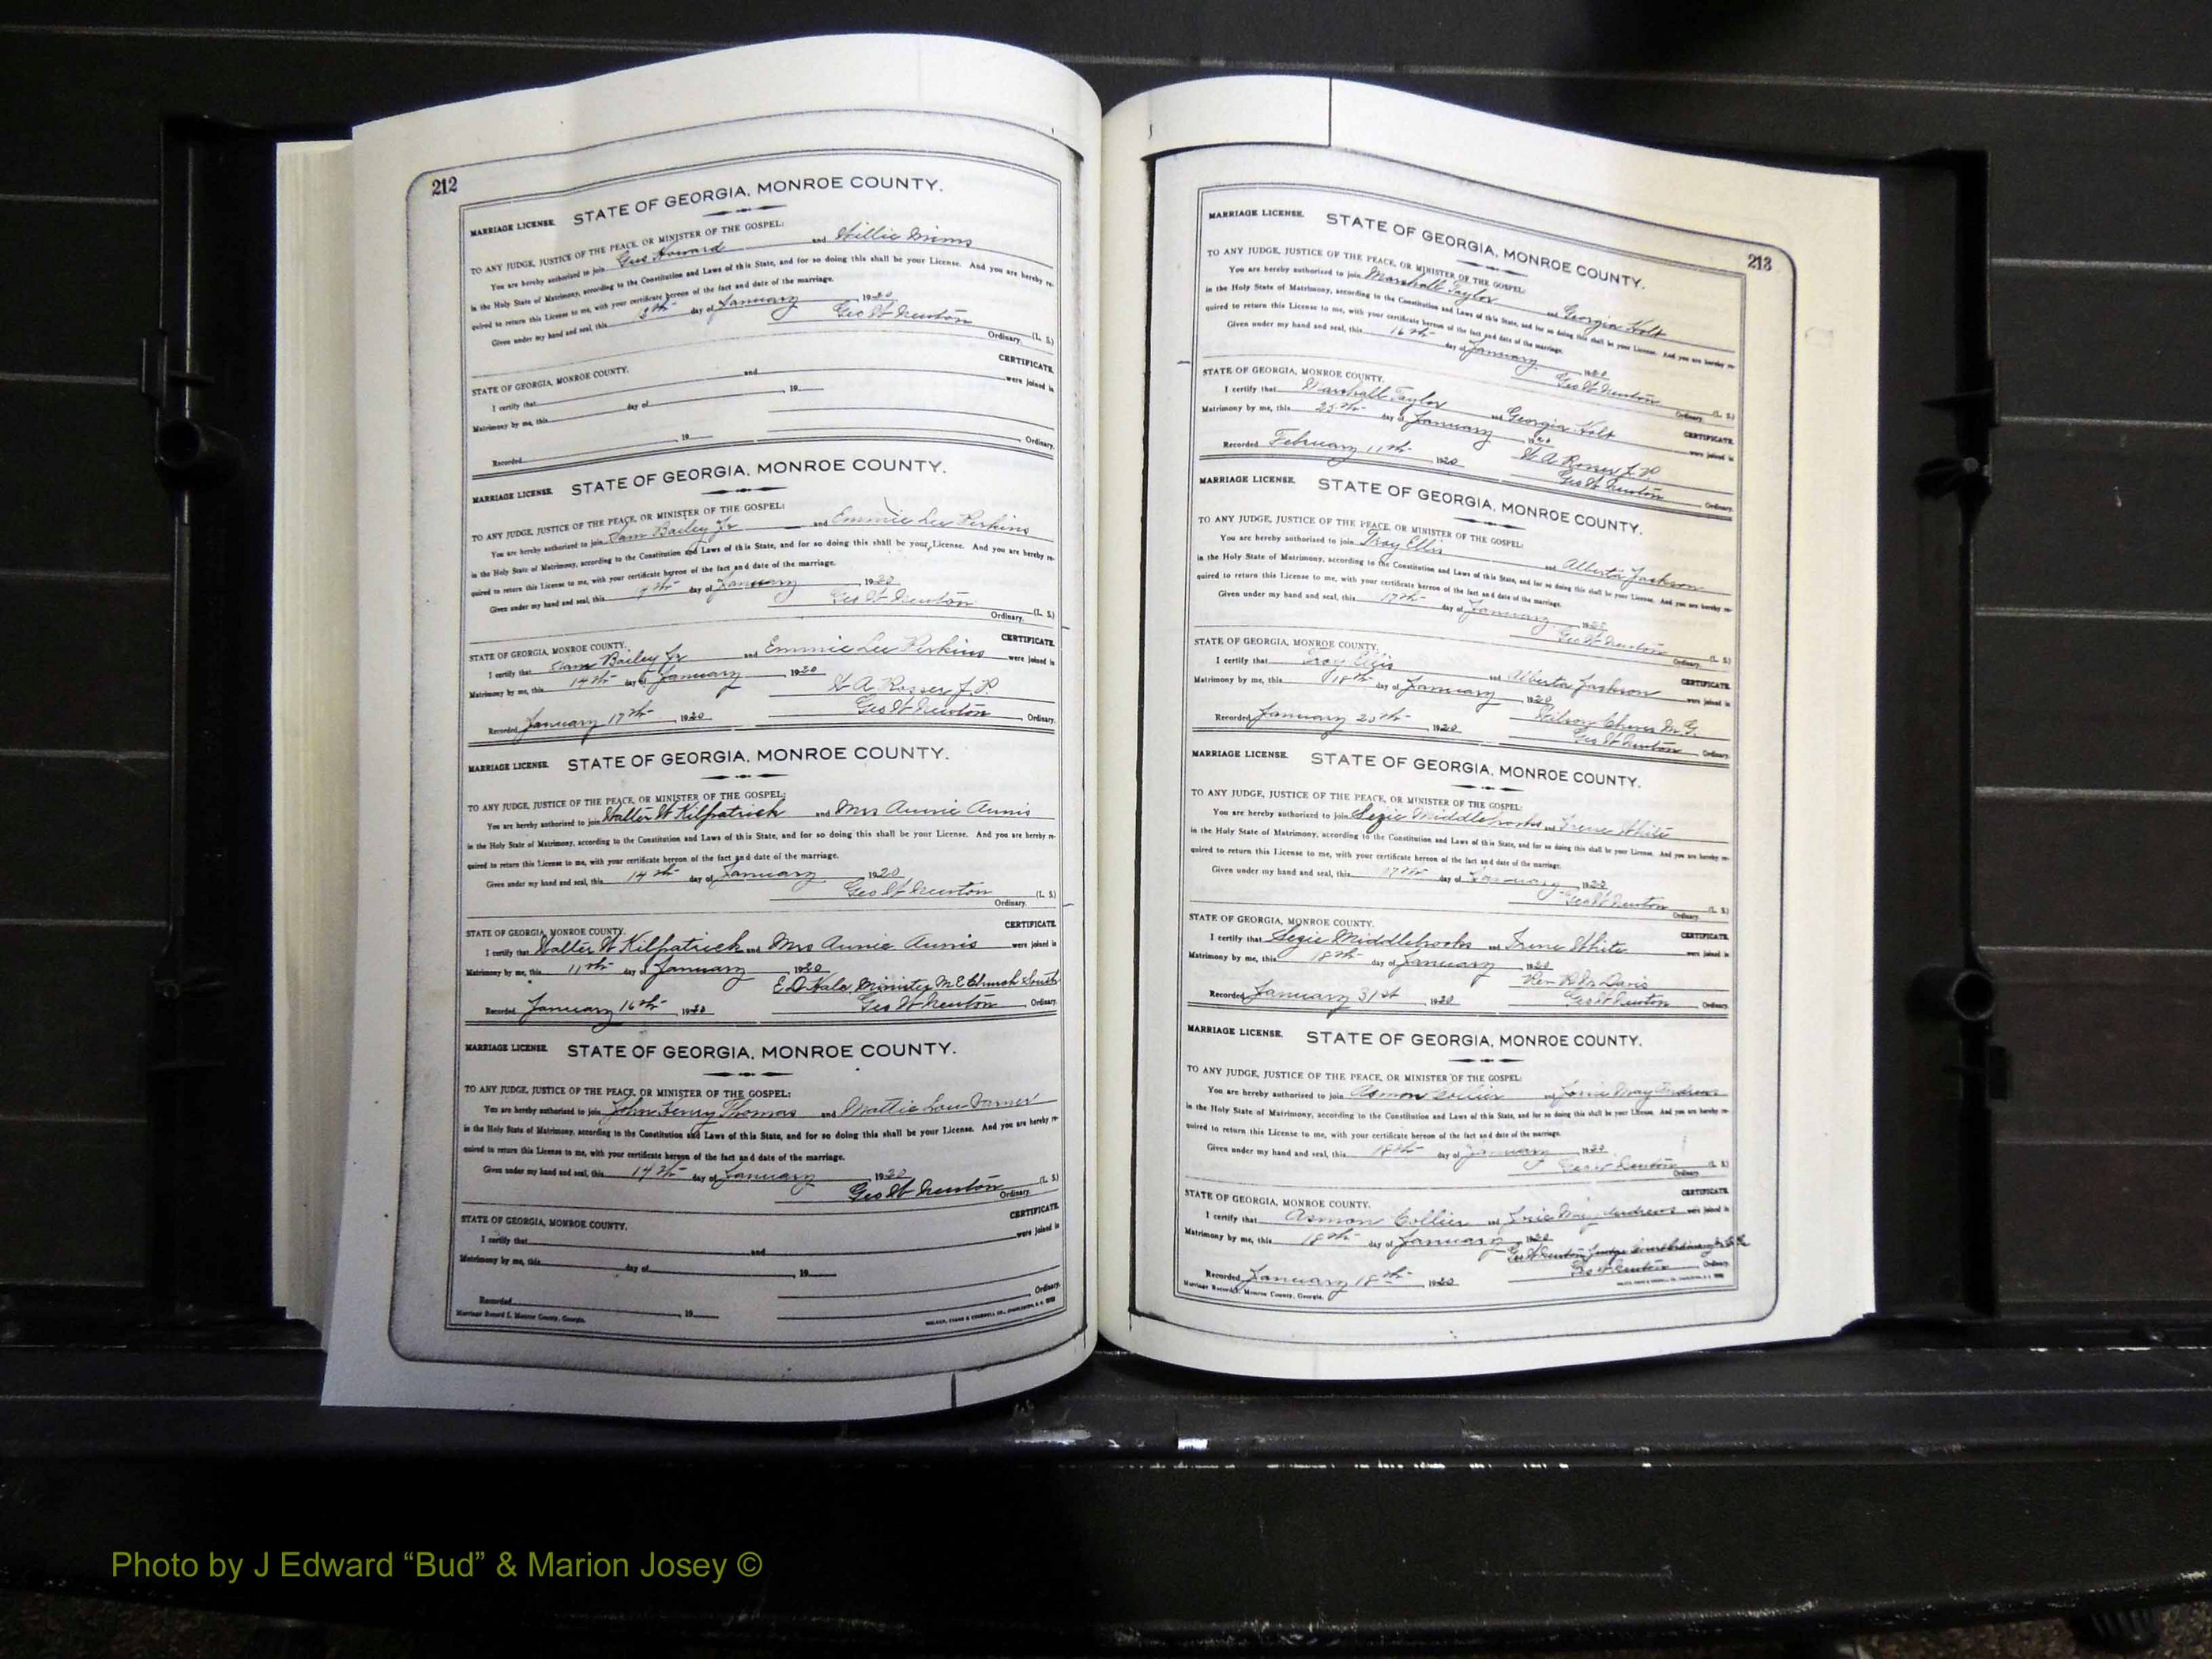 212
MARRIAGE LICENSE. STATE OF GEORGIA, MONROE COUNTY.
TO ANY JUDGE, JUSTICE OF THE PEACE, OR MINISTER OF THE GOSPEL:
You are hereby authorized to join Gus Howard and Willie Mims
in the Holy State of Matrimony, according to the Constitution and Laws of this State, and for so doing this shall be your License. And you are hereby re-
quired to return this License to me, with your certificate hereon of the fact and date of the marriage.
Given under my hand and seal, this 8th day of January 1920
Geo W Newton (L. S.)
Ordinary.
STATE OF GEORGIA, MONROE COUNTY. CERTIFICATE.
I certify that and were joined in
Matrimony by me, this day of , 19
Recorded , 19 Ordinary.
MARRIAGE LICENSE. STATE OF GEORGIA, MONROE COUNTY.
TO ANY JUDGE, JUSTICE OF THE PEACE, OR MINISTER OF THE GOSPEL:
You are hereby authorized to join Sam Bailey Jr and Emmie Lee Perkins
in the Holy State of Matrimony, according to the Constitution and Laws of this State, and for so doing this shall be your License. And you are hereby re-
quired to return this License to me, with your certificate hereon of the fact and date of the marriage.
Given under my hand and seal, this day of January , 1920
Geo W Newton (L. S.)
Ordinary.
STATE OF GEORGIA, MONROE COUNTY. CERTIFICATE.
I certify that Sam Bailey Jr and Emmie Lee Perkins were joined in
Matrimony by me, this 14th day of January , 1920
W A Rosser J. P
Recorded January 17th , 1920 Geo W Newton Ordinary.
MARRIAGE LICENSE. STATE OF GEORGIA, MONROE COUNTY.
TO ANY JUDGE, JUSTICE OF THE PEACE, OR MINISTER OF THE GOSPEL:
You are hereby authorized to join Walter W Kilpatrick and Mrs Annie Annis
in the Holy State of Matrimony, according to the Constitution and Laws of this State, and for so doing this shall be your License. And you are hereby re-
quired to return this License to me, with your certificate hereon of the fact and date of the marriage.
Given under my hand and seal, this 14th day of January 1920
Geo W Newton (L. S.)
Ordinary.
STATE OF GEORGIA, MONROE COUNTY. CERTIFICATE.
I certify that Walter W Kilpatrick and Mrs Annie Annis were joined in
Matrimony by me, this 11th day of January , 1920
E D Hale Minister M E Church South
Recorded January 16th , 1920 Geo W Newton Ordinary.
MARRIAGE LICENSE. STATE OF GEORGIA, MONROE COUNTY.
TO ANY JUDGE, JUSTICE OF THE PEACE, OR MINISTER OF THE GOSPEL:
You are hereby authorized to join John Henry Thomas and Mattie Lou
in the Holy State of Matrimony, according to the Constitution and Laws of this State, and for so doing this shall be your License. And you are hereby re-
quired to return this License to me, with your certificate hereon of the fact and date of the marriage.
Given under my hand and seal, this 14th day of January , 1920
Geo W Newton (L. S.)
Ordinary.
STATE OF GEORGIA, MONROE COUNTY. CERTIFICATE.
I certify that and were joined in
Matrimony by me, this day of , 19
Ordinary.
Recorded , 19
Marriage Record I. Monroe County, Georgia.
213
MARRIAGE LICENSE. STATE OF GEORGIA, MONROE COUNTY.
TO ANY JUDGE, JUSTICE OF THE PEACE, OR MINISTER OF THE GOSPEL:
You are hereby authorized to join Marshall Taylor and Georgia Holt
in the Holy State of Matrimony, according to the Constitution and Laws of this State, and for so doing this shall be your License. And you are hereby re-
quired to return this License to me, with your certificate hereon of the fact and date of the marriage.
Given under my hand and seal, this 16th day of January 1920
Geo W Newton (L. S.)
Ordinary.
STATE OF GEORGIA, MONROE COUNTY. CERTIFICATE.
I certify that Marshall Taylor and Georgia Holt were joined in
Matrimony by me, this 25th day of January , 1920
W A Rosser J. P
Recorded February 11th , 1920 Geo W Newton Ordinary.
MARRIAGE LICENSE. STATE OF GEORGIA, MONROE COUNTY.
TO ANY JUDGE, JUSTICE OF THE PEACE, OR MINISTER OF THE GOSPEL:
You are hereby authorized to join Troy Ellis and Alberta Jackson
in the Holy State of Matrimony, according to the Constitution and Laws of this State, and for so doing this shall be your License. And you are hereby re-
quired to return this License to me, with your certificate hereon of the fact and date of the marriage.
Given under my hand and seal, this 17th day of January , 1920
Geo W Newton (L. S.)
Ordinary.
STATE OF GEORGIA, MONROE COUNTY. CERTIFICATE.
I certify that Troy Ellis and Alberta Jackson were joined in
Matrimony by me, this 18th day of January , 1920
M. G.
Recorded January 20th , 1920 Geo W Newton Ordinary.
MARRIAGE LICENSE. STATE OF GEORGIA, MONROE COUNTY.
TO ANY JUDGE, JUSTICE OF THE PEACE, OR MINISTER OF THE GOSPEL:
You are hereby authorized to join Middlebrooks and Irene White
in the Holy State of Matrimony, according to the Constitution and Laws of this State, and for so doing this shall be your License. And you are hereby re-
quired to return this License to me, with your certificate hereon of the fact and date of the marriage.
Given under my hand and seal, this 17th day of January , 1920
Geo W Newton (L. S.)
Ordinary.
STATE OF GEORGIA, MONROE COUNTY. CERTIFICATE.
I certify that Middlebrooks and Irene White were joined in
Matrimony by me, this 18th day of January , 1920
Rev Davis
Recorded January 31st , 1920 Geo W Newton Ordinary.
MARRIAGE LICENSE. STATE OF GEORGIA, MONROE COUNTY.
TO ANY JUDGE, JUSTICE OF THE PEACE, OR MINISTER OF THE GOSPEL:
You are hereby authorized to join Asmon Collier and May Andrews
in the Holy State of Matrimony, according to the Constitution and Laws of this State, and for so doing this shall be your License. And you are hereby re-
quired to return this License to me, with your certificate hereon of the fact and date of the marriage.
Given under my hand and seal, this 18th day of January , 1920
Geo W Newton (L. S.)
Ordinary.
STATE OF GEORGIA, MONROE COUNTY. CERTIFICATE.
I certify that Asmon Collier and May Andrews were joined in
Matrimony by me, this 18th day of January , 1920
Geo W Newton Judge
Recorded January 18th , 1920 Geo W Newton Ordinary.
Marriage Record I. Monroe County, Georgia.
Photo by J Edward “Bud” & Marion Josey ©